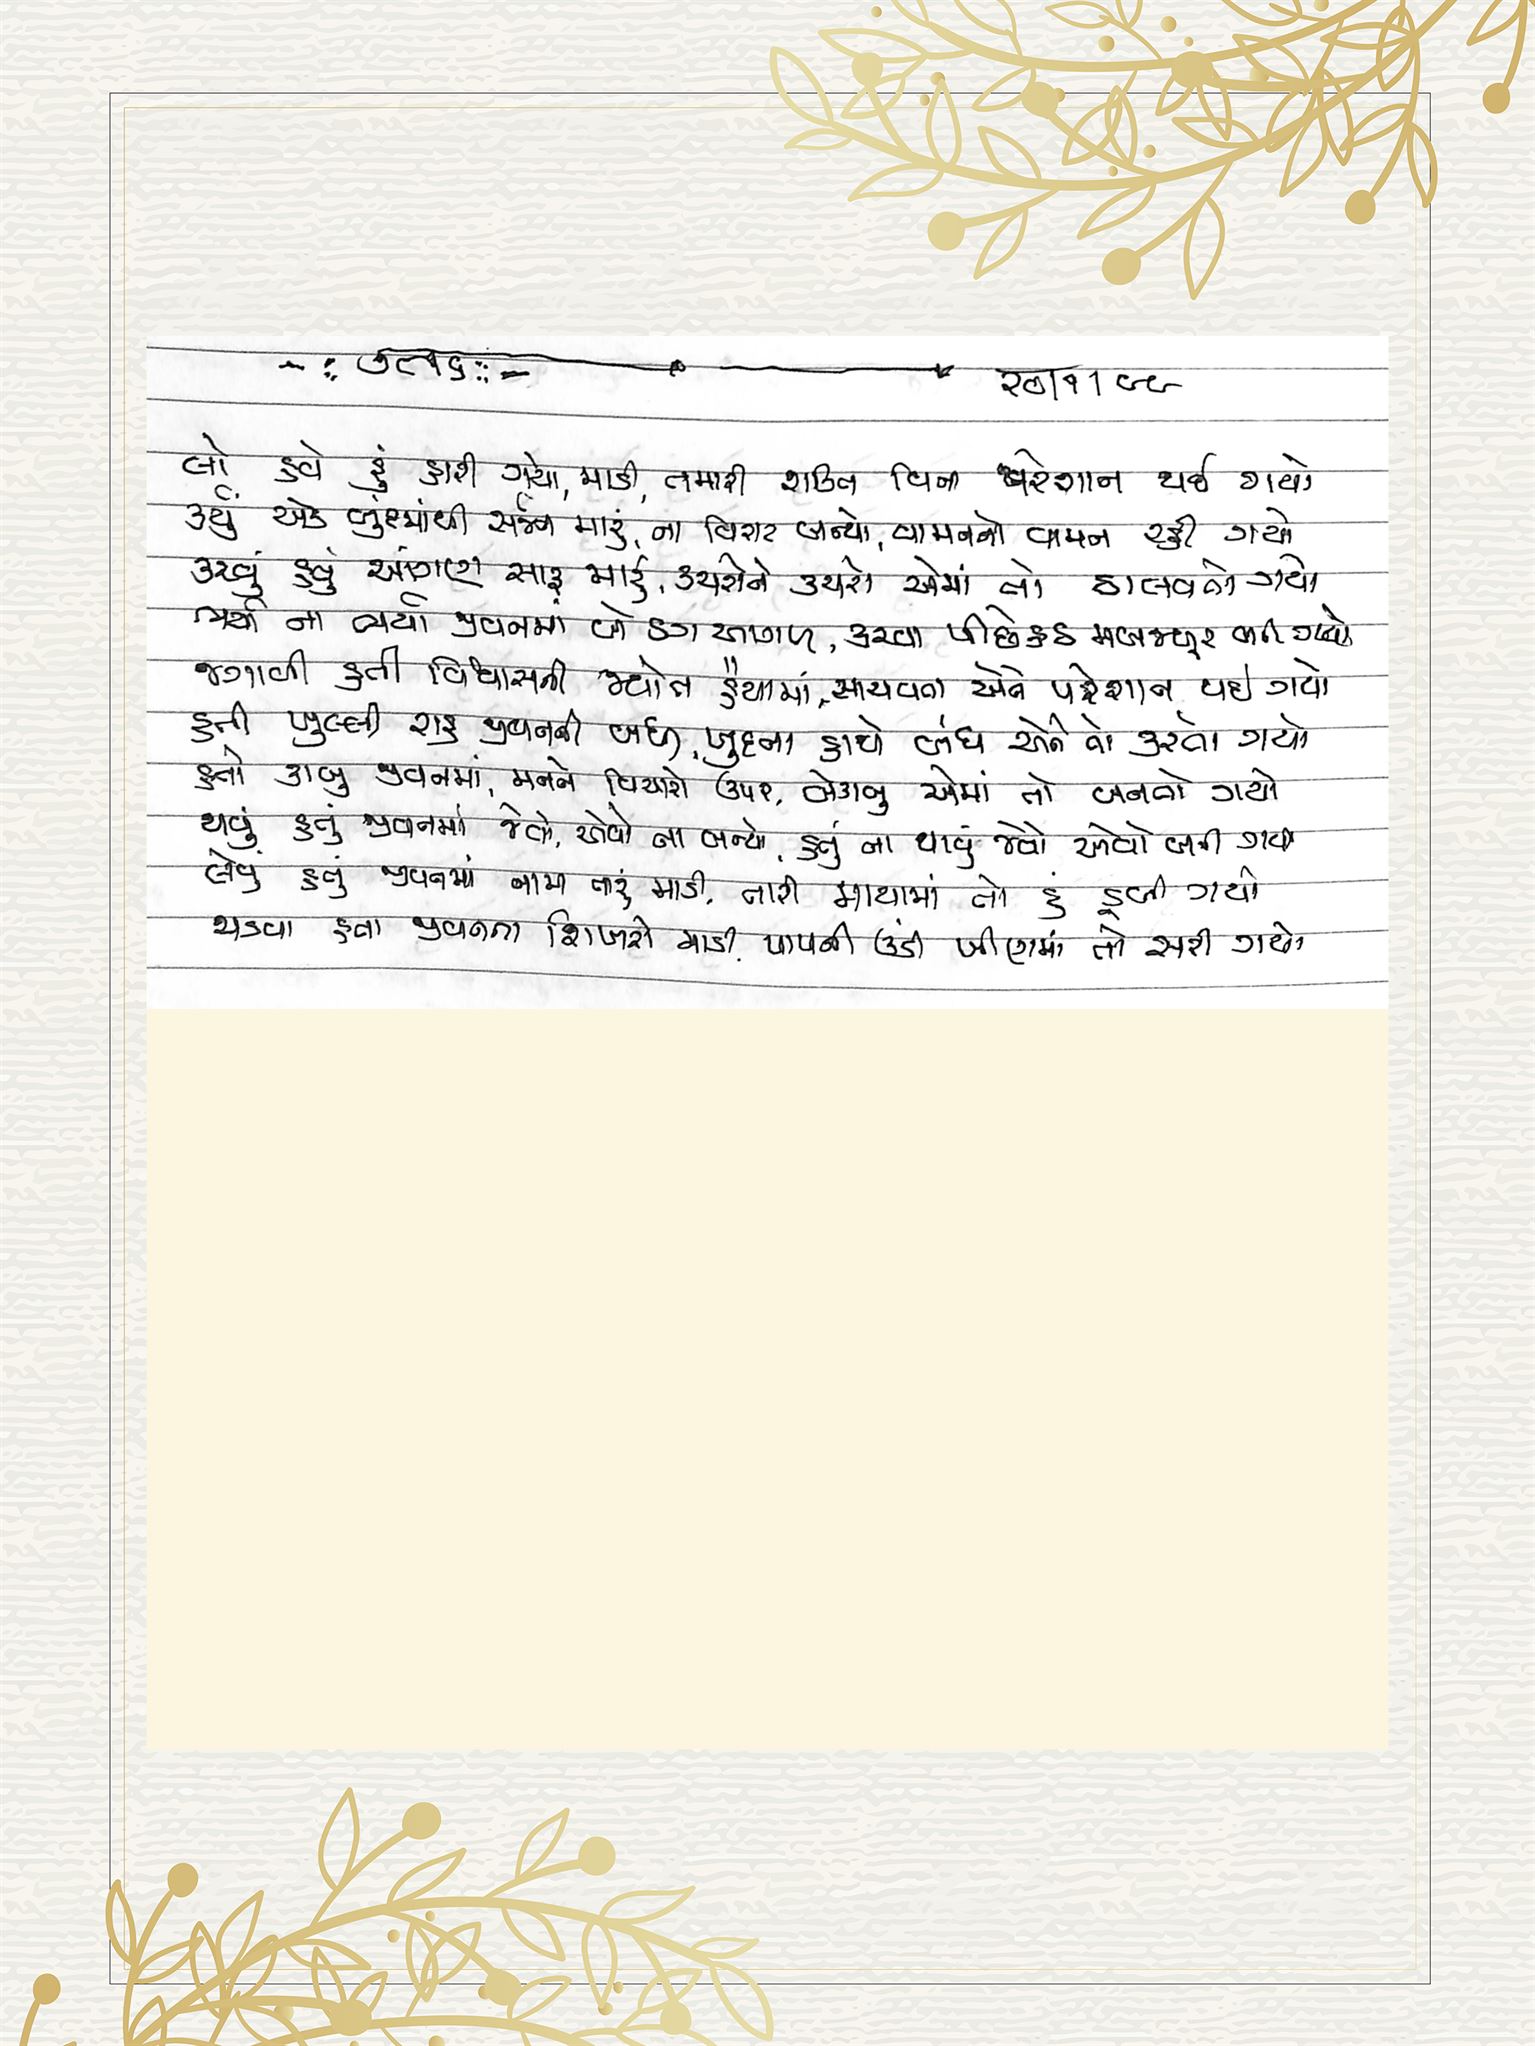 ૭૮૧૬
૨૭/૧૧ ૯૮
લો હવે હું હારી ગયો, માડી, તમારી શક્તિ વિના પરેશાન થઈ ગયો
કર્યું એક બુંદમાંથી સર્જન મારું, ના વિરાટ બન્યો, વામનનો વામન રહી ગયો
કરવું હતું આંગણું સાફ મારું, કચરોને કચરો એમાં તો ઠાલવતો ગયો
ના ભર્યા જીવનમાં બે ડગ આગળ, કરવા પીછેહઠ મજબૂર બની ગયો
જગાવી હતી વિશ્વાસની જ્યોત હૈયામાં, સાચવવા એને પરેશાન થઈ ગયો
હતી ખુલ્લી રાહ જીવનની બધી, ખુદના હાથે બંધ એને તો કરતો ગયો
હતો કાબુ જીવનમાં, મનને વિચારો ઉપર, બેકાબુ એમાં તો બનતો ગયો
થાવું હતું જીવનમાં જેવો, એવો ના બન્યો, હતું ના થાવું જેવો એવો બની ગયો
લેવું હતું જીવનમાં નામ તારું માડી, તારી માયામાં તો હું ડૂબી ગયો
ચડવા હતા જીવનના શિખરો માડી, પાપની ઉંડી ખીણમાં તો સરી ગયો